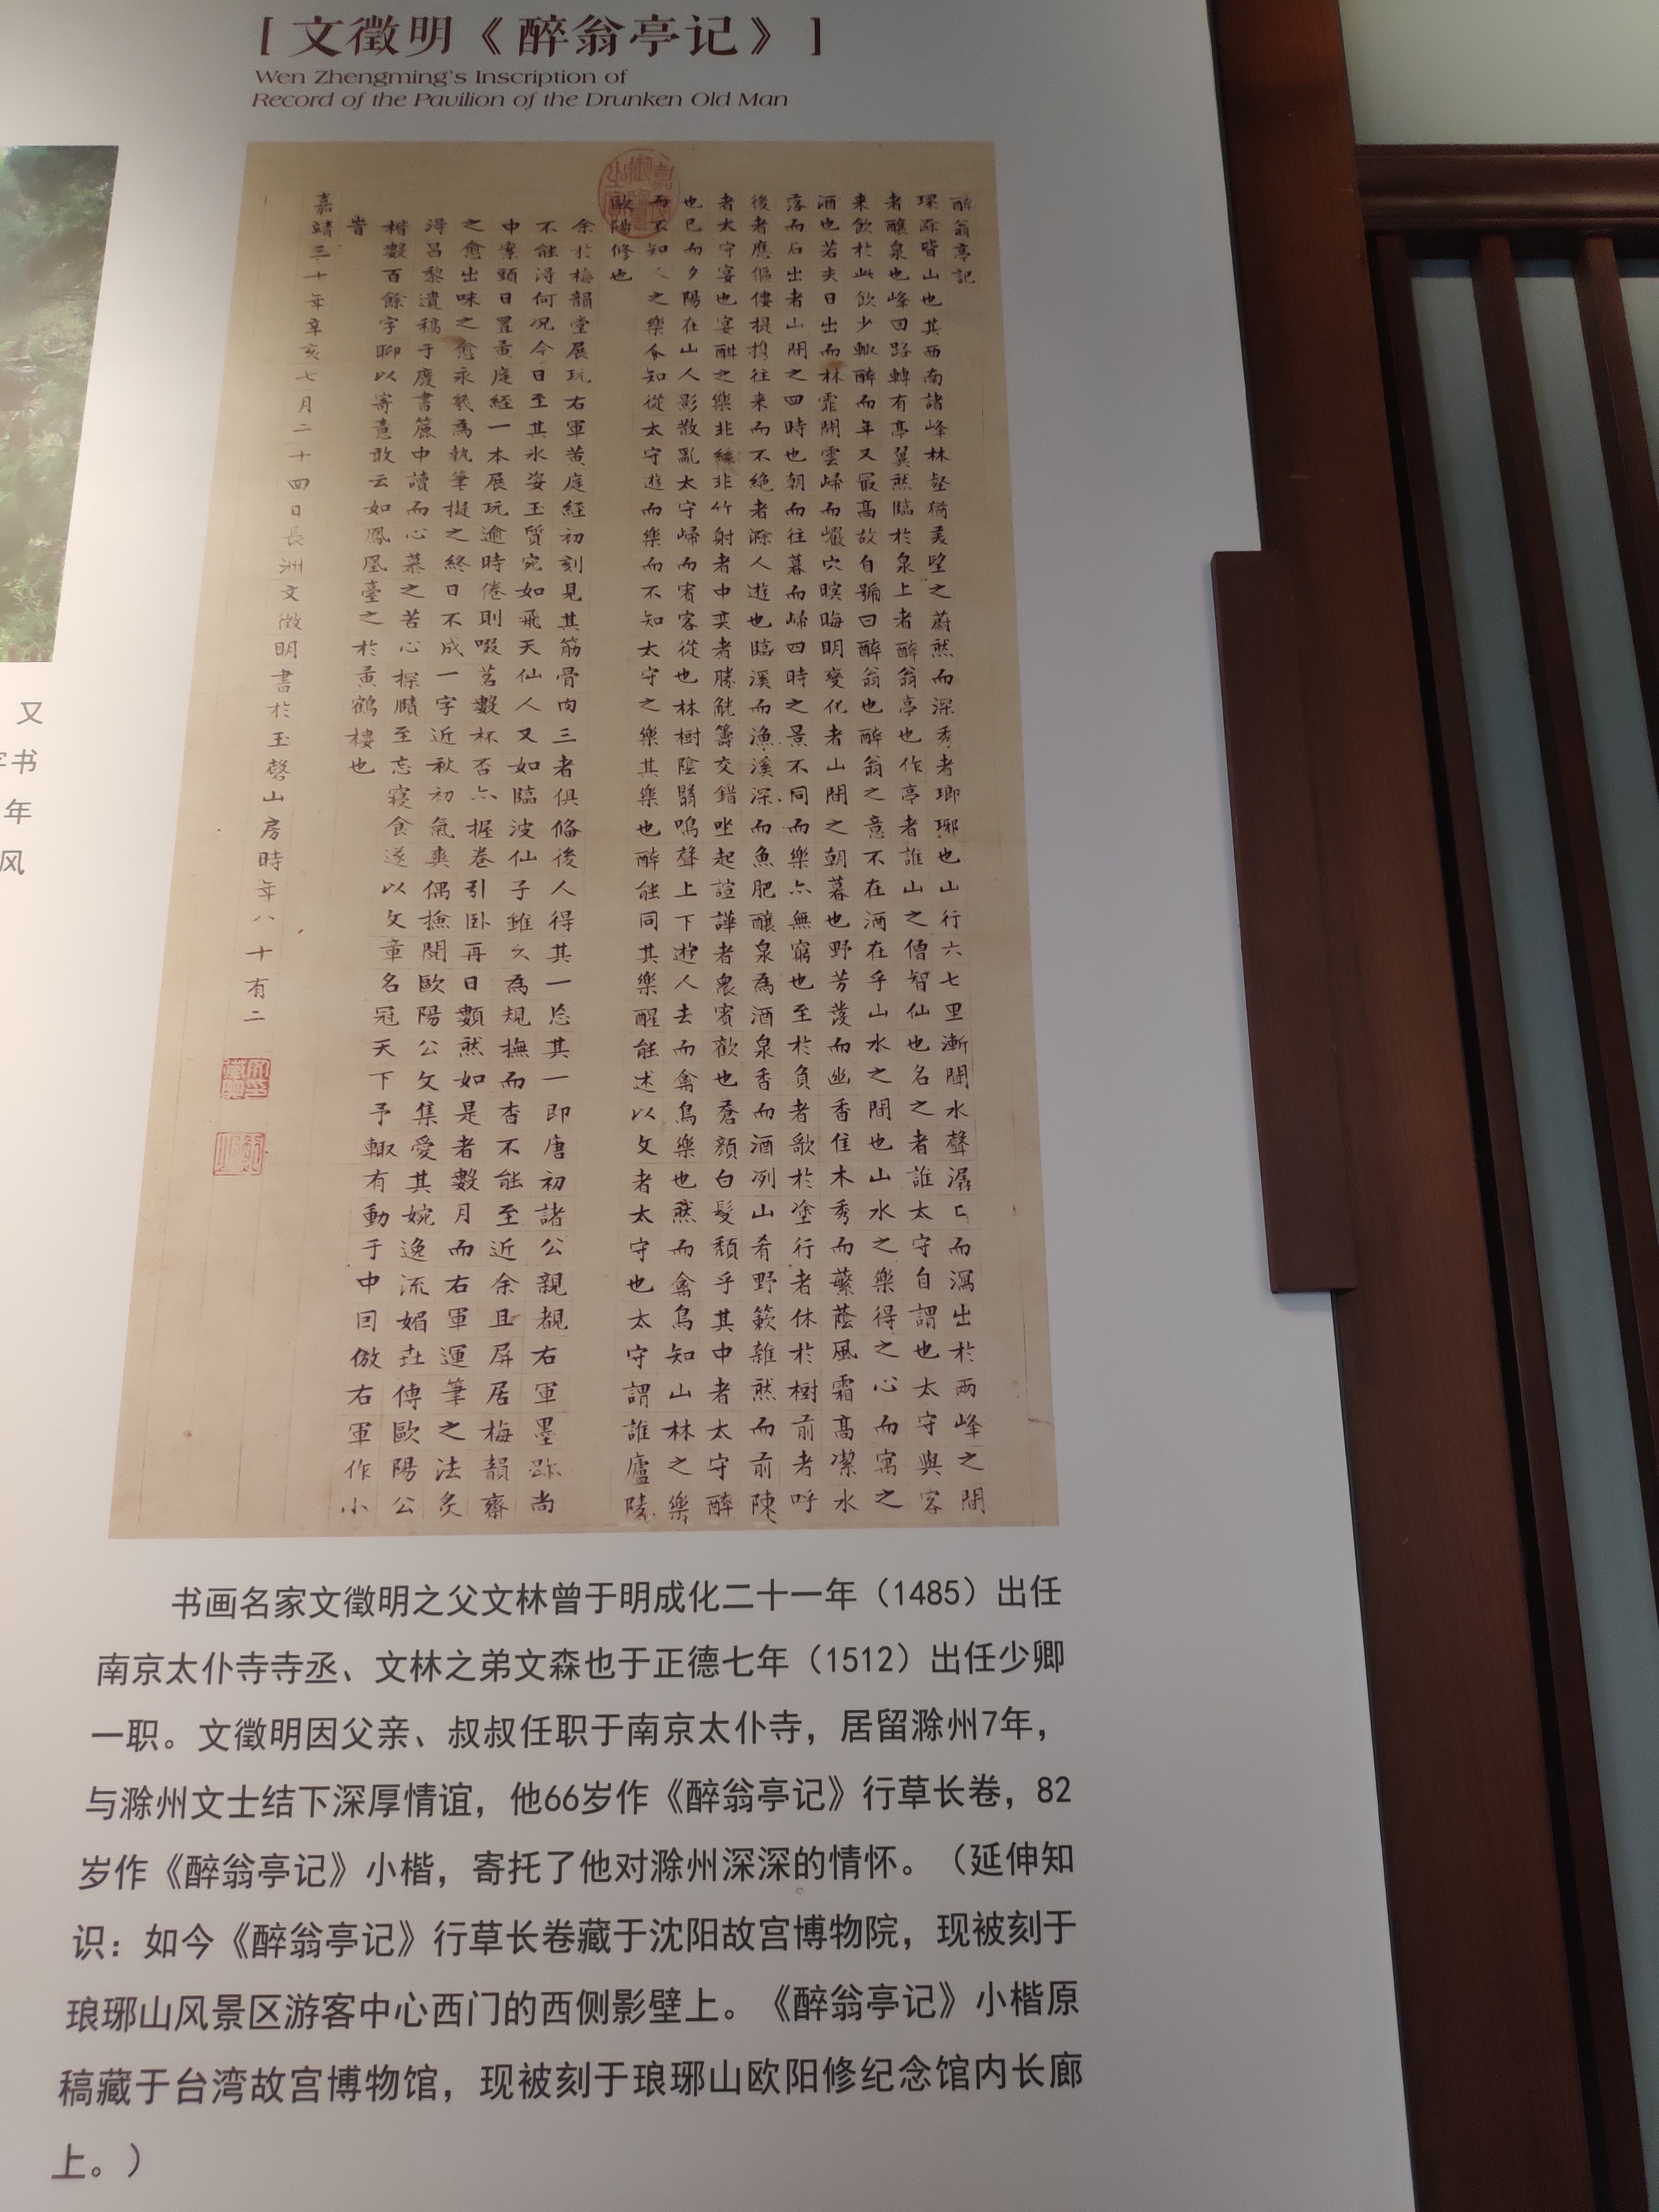 [ 文徵明《醉翁亭记》 ]
Wen Zhengming's Inscription of
Record of the Pavilion of the Drunken Old Man
醉翁亭記
環滁皆山也其西南諸峰林壑猶美望之蔚然而深秀者瑯琊也山行六七里漸聞水聲潺〻而瀉出於兩峰之間
者釀泉也峰回路轉有亭翼然臨於泉上者醉翁亭也作亭者誰山之僧智仙也名之者誰太守自謂也太守與客
来飲於此飲少輒醉而年又最高故自號曰醉翁也醉翁之意不在酒在乎山水之間也山水之樂得之心而寓之
酒也若夫日出而林霏開雲歸而巖穴暝晦明變化者山間之朝暮也野芳發而幽香佳木秀而蘩蔭風霜高潔水
落而石出者山間之四時也朝而往暮而歸四時之景不同而樂亦無窮也至於負者歌於塗行者休於樹前者呼
後者應傴僂提攜往来而不絕者滁人遊也臨溪而漁溪深而魚肥釀泉為酒泉香而酒冽山肴野簌雜然而前陳
者太守宴也宴酣之樂非絲非竹射者中奕者勝觥籌交錯坐起諠譁者衆賓歡也蒼顏白髮頹乎其中者太守醉
也已而夕陽在山人影散亂太守歸而賓客從也林樹陰翳鳴聲上下遊人去而禽鳥樂也然而禽鳥知山林之樂
而不知人之樂人知從太守遊而樂而不知太守之樂其樂也醉能同其樂醒能述以文者太守也太守謂誰廬陵
歐陽修也
余於梅韻堂展玩右軍黄庭經初刻見其筋骨肉三者俱俻後人得其一忘其一即唐初諸公親覩右軍墨跡尚
不能得何况今日至其氷姿玉質宛如飛天仙人又如臨波仙子雖久為規撫而杳不能至近余且屏居梅韻齋
中案頭日置黃庭經一本展玩逾時倦則啜茗數杯否亦握卷引卧再日數然如是者數月而右軍運筆之法炙
之愈出味之愈永幾為執筆擬之終日不成一字近秋初氣爽偶撿閱歐陽公文集愛其婉逸流媚世傳歐陽公
得昌黎遺稿于廢書簏中讀而心慕之苦心探賾至忘寢食遂以文章名冠天下予輒有動于中因倣右軍作小
楷數百餘字聊以寄意敢云如鳳凰臺之於黃鶴樓也
旹
嘉靖三十年辛亥七月二十四日長洲文徵明書於玉磬山房時年八十有二
书画名家文徵明之父文林曾于明成化二十一年（1485）出任
南京太仆寺寺丞、文林之弟文森也于正德七年（1512）出任少卿
一职。文徵明因父亲、叔叔任职于南京太仆寺，居留滁州7年，
与滁州文士结下深厚情谊，他66岁作《醉翁亭记》行草长卷，82
岁作《醉翁亭记》小楷，寄托了他对滁州深深的情怀。（延伸知
识：如今《醉翁亭记》行草长卷藏于沈阳故宫博物院，现被刻于
琅琊山风景区游客中心西门的西侧影壁上。《醉翁亭记》小楷原
稿藏于台湾故宫博物馆，现被刻于琅琊山欧阳修纪念馆内长廊
上。）
又
书
年
风